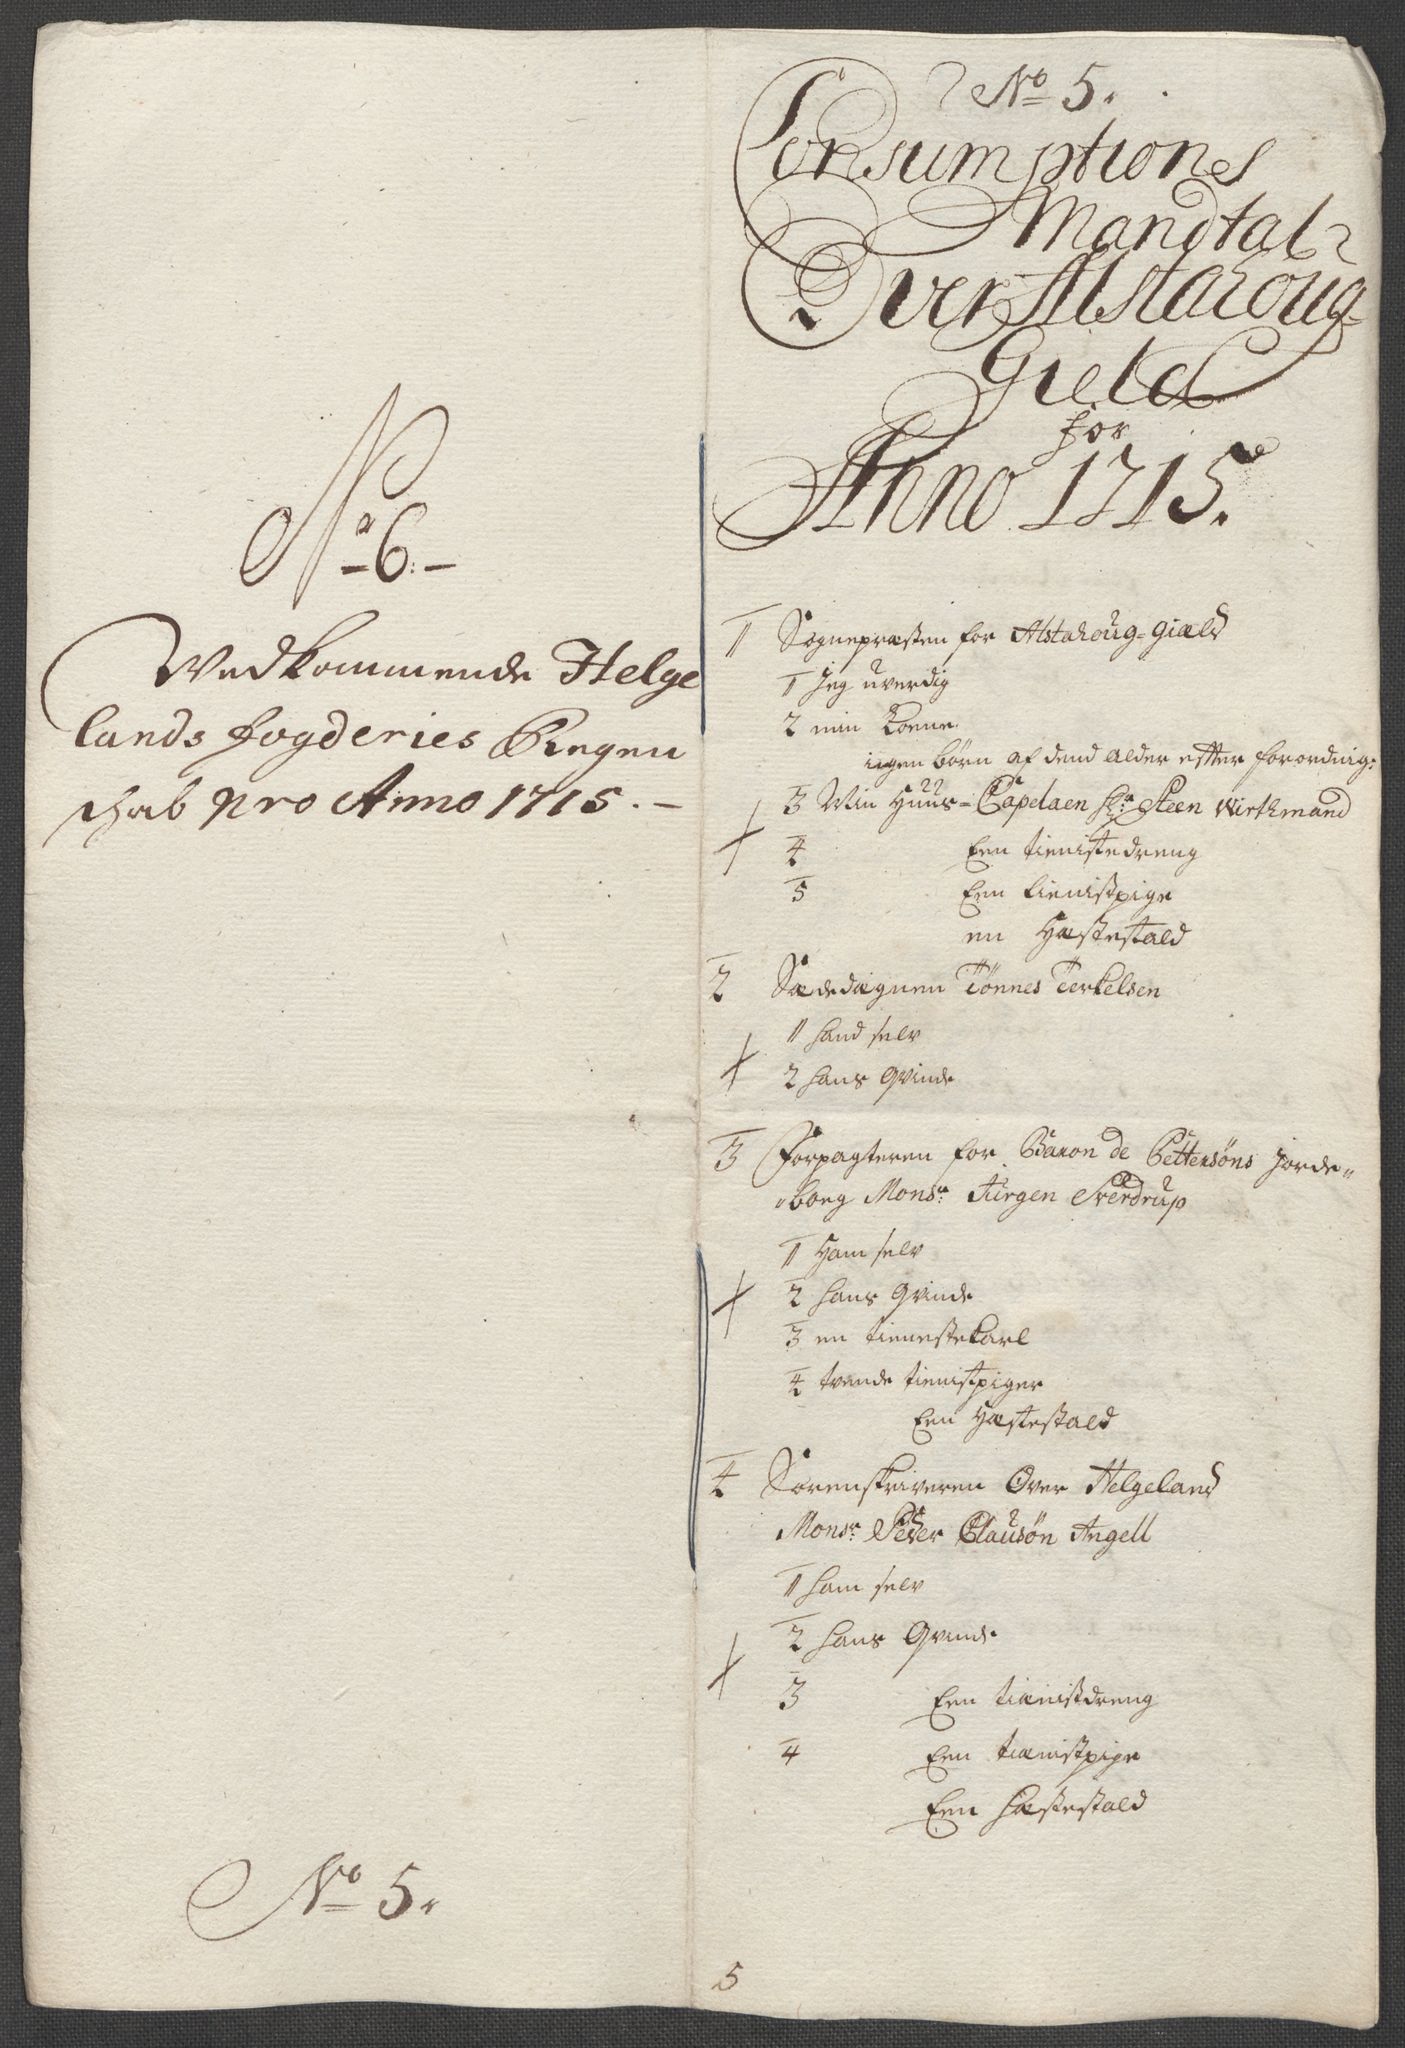 No 6.
Vedkommende Helge
lands fogderies Regen
schab pro Anno 1715.
No 5.
No 5.
Consumptions
Mandtal
Over Alstahoug-
Gield
for
Anno 1715.
1 Sognepræsten for Alstahoug-Giæld
1 Jeg uverdig
2 min Kone
ingen børn af dend alder effter forordnig:
3 Min Huus-Capelaen Hr: Steen Wirthmand
4 Een tienistedreng
5 Een tienistpige
en Hæstestald
2 Sædedægnen Tönnes Terkelsen
1 hand selv
2 hans Qvinde
3 Forpagteren for Baron de Pettersöns Jorde-
-boeg Monsr: Jürgen Sverdrup
1 Ham selv
2 hans Qvinde
3 en tienestekarl
4 tvende tienistpiger
Een Hæstestald
4 Sorenskriveren Over Helgeland
Monsr: Peder Clausøn Angell
1 ham selv
2 hans Qvinde
3 Een tienistdreng
4 Een tienistpige
Een hæstestald
5